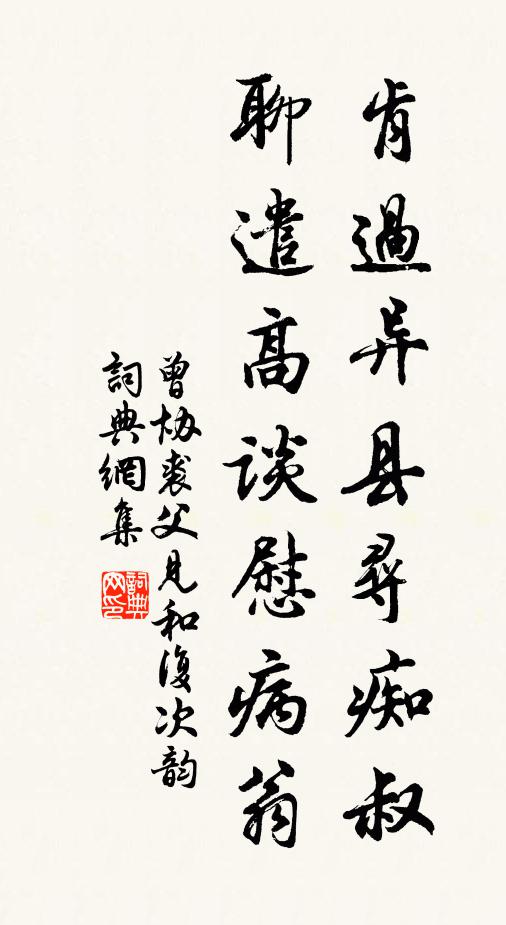 肯過异县尋痴叔
聊遣高談慰病翁
曾协裘父見和復次韵
詞典網集
詞典网印